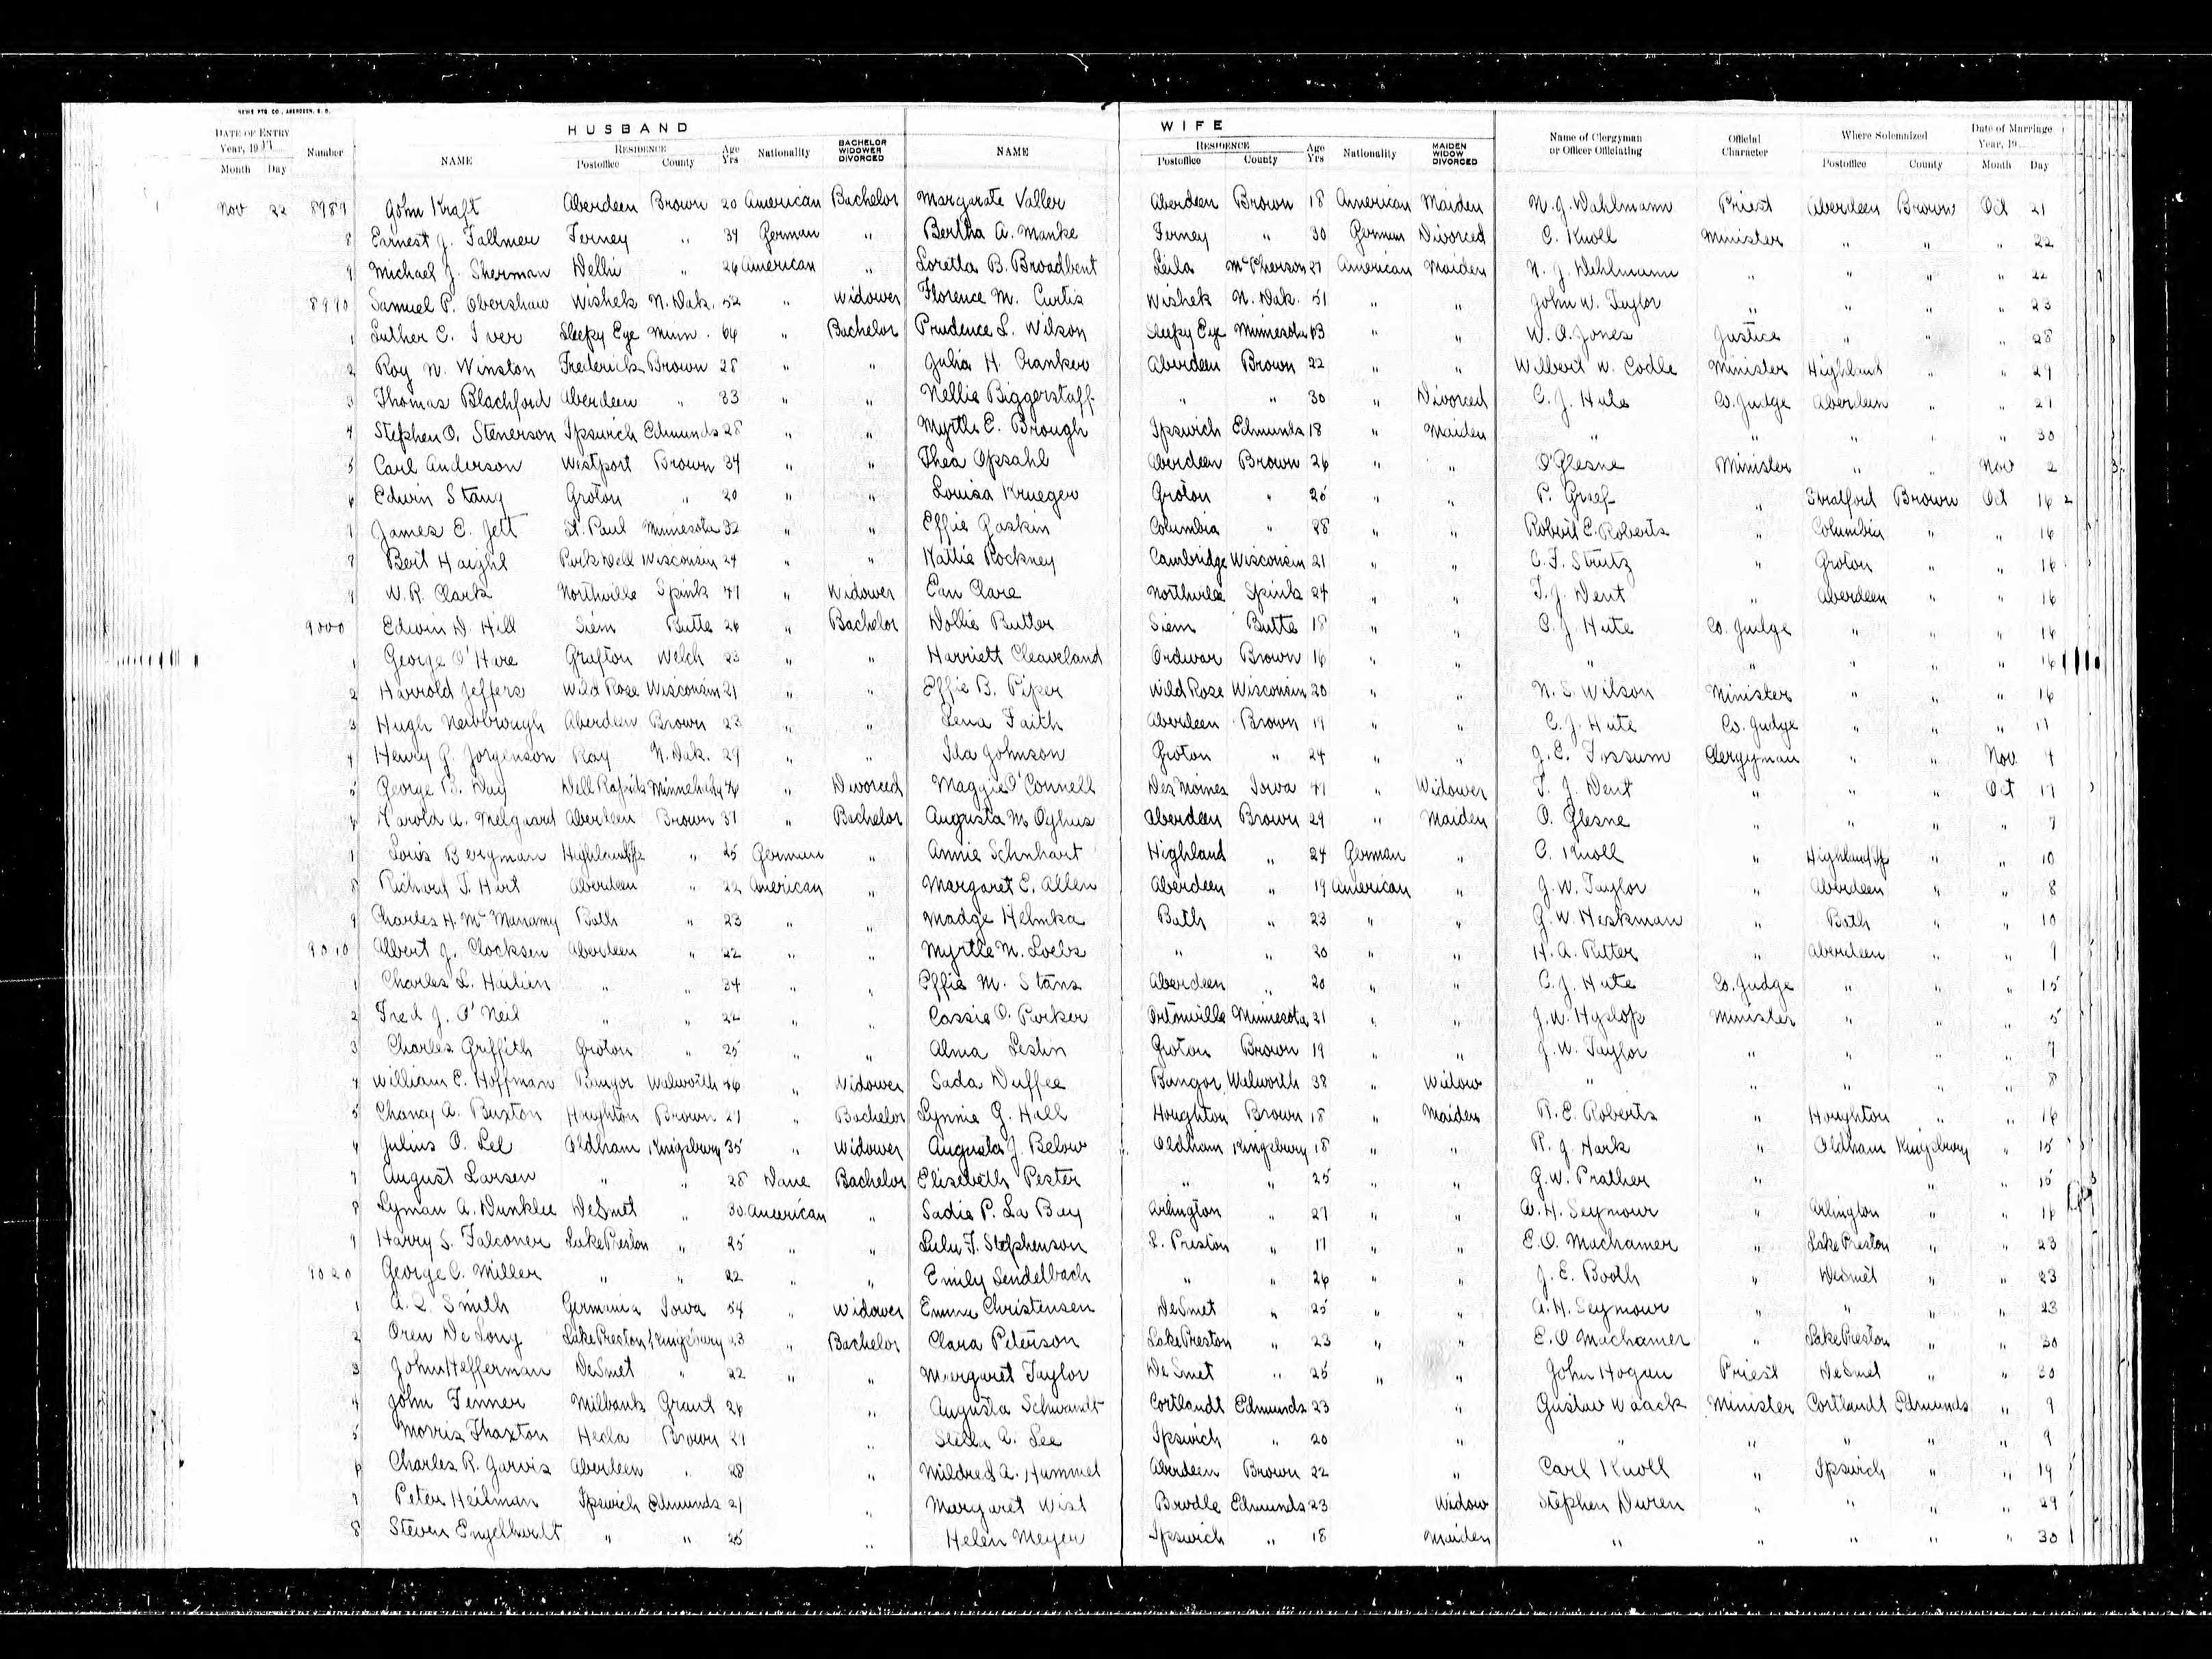 NEWS PTG. CO., ABERDEEN, S. D.
HUSBAND WIFE
DATE OF ENTRY Year, 19 Number NAME RESIDENCE Postoffice County Age Yrs Nationality BACHELOR WIDOWER DIVORCED NAME RESIDENCE Postoffice County Age Yrs Nationality MAIDEN WIDOW DIVORCED Name of Clergyman or Officer Officiating Official Character Where Solemnized Postoffice County Date of Marriage Year, 19
Month Day Month Day
Nov 22 John Kraft Aberdeen Brown 20 American Bachelor Margarate Valler Aberdeen Brown 18 American Maiden N. J. Wahlmann Priest Aberdeen Brown Oct 21
8 Earnest J. Fallmer Ferney " 34 German " Bertha A. Manke Ferney " 30 German Divorced C. Knoll Minister " " " 22
9 Michael J. Sherman " 26 American " Loretta B. Broadbent Leila McPherson 21 American Maiden N. J. Wehlmann " " " " 22
8990 Samuel P. Obershaw Wishek N. Dak. 52 " Widower Florence M. Curtis Wishek N. Dak. 51 " " John W. Taylor " " " " 23
1 Luther C. Iver Sleepy Eye Minn. 64 " Bachelor Prudence L. Wilson Sleepy Eye Minnesota 63 " " W. A. Jones Justice " " " 28
2 Roy N. Winston Frederick Brown 28 " " Julia H. Cranker Aberdeen Brown 22 " " Wilbert W. Codle Minister Highland " " 29
3 Thomas Blachford Aberdeen " 33 " " Nellie Biggerstaff " " 30 " Divorced C. J. Hute Co. Judge Aberdeen " " 29
4 Stephen O. Stenerson Ipswich Edmunds 28 " " Myrtle E. Brough Ipswich Edmunds 18 " Maiden " " " " " 30
5 Carl Anderson Westport Brown 34 " " Thea Opsahl Aberdeen Brown 26 " " O Glesne Minister " " Nov 2
6 Edwin Stang Groton " 20 " " Louisa Krueger Groton " 20 " " P. Graef " Stratford Brown Oct 16
7 James E. Jett St. Paul Minnesota 32 " " Effie Gaskin Columbia " 28 " " Robert E. Roberts " Columbia " " 16
8 Bert Haight Wisconsin 24 " " Hattie Rockney Cambridge Wisconsin 21 " " C. F. Strutz " Groton " " 16
9 W. R. Clark Northville Spink 47 " Widower Clare Northville Spink 24 " " T. J. Dent " Aberdeen " " 16
9000 Edwin D. Hill Siem Butte 26 " Bachelor Dollie Butter Siem Butte 18 " " C. J. Hute Co. Judge " " " 16
1 George O'Hare Grafton Welch 23 " " Harriett Cleaveland Ordway Brown 16 " " " " " " " 16
2 Harrold Jeffers Wild Rose Wisconsin 21 " " Effie B. Piper Wild Rose Wisconsin 20 " " N. S. Wilson Minister " " " 16
3 Hugh Newbrough Aberdeen Brown 23 " " Lena Faith Aberdeen Brown 19 " " C. J. Hute Co. Judge " " "
4 Henry G. Jorgenson Ray N. Dak. 29 " " Ida Johnson Groton " 24 " " J. E. Fossum Clergyman " " Nov. 4
5 George B. Day Dell Rapids Minnehaha 46 " Divorced Maggie O'Connell Des Moines Iowa 41 " Widower T. J. Dent " " " Oct 17
6 Harold A. Melgaard Aberdeen Brown 37 " Bachelor Augusta M Oyhus Aberdeen Brown 29 " Maiden O. Glesne " " " " 7
7 Loris Bergman Highland Tp " 25 German " Annie Schnhart Highland " 24 German " C. Knoll " Highland Tp " " 10
8 Richard T. Hirt Aberdeen " 22 American " Margaret E. Allen Aberdeen " 19 American " J. W. Taylor " Aberdeen " " 8
9 Charles H. McManamy Bath " 23 " " Madge Helmka Bath " 23 " " G. W. Heskman " Bath " " 10
9010 Albert J. Clocksen Aberdeen " 22 " " Myrtle M. Loebs " " 20 " " H. A. Ritter " Aberdeen " " 9
1 Charles L. " " 34 " " Effie M. Stans Aberdeen " 20 " " C. J. Hute Co. Judge " " " 15
2 Fred J. O'Neil " " 22 " " Cassie O. Parker Ortonville Minnesota 21 " " J. W. Hyslop Minister " " " 5
3 Charles Griffith Groton " 25 " " Alma Leslin Groton Brown 19 " " J. W. Taylor " " " " 7
4 William E. Hoffman Bangor Walworth 46 " Widower Sada Duffee Bangor Walworth 38 " Widow " " " " " 8
5 Chancy A. Buxton Houghton Brown 21 " Bachelor Lynnie G. Hall Houghton Brown 18 " Maiden R. E. Roberts " Houghton " " 16
6 Julius O. Lee Oldham Kingsbury 35 " Widower Augusta J. Below Oldham Kingsbury 18 " " R. J. Hark " Oldham Kingsbury " 15
7 August Larsen " " 28 Dane Bachelor Elisebeth Pester " " 25 " " G. W. Prather " " " " 15
8 Lyman A. Dunklee DeSmet " 30 American " Sadie P. La Bay Arlington " 27 " " A. H. Seymour " Arlington " " 16
9 Harry S. Falconer Lake Preston " 25 " " Lulu F. Stephenson L. Preston " 17 " " E. O. Machamer " Lake Preston " " 23
9020 George C. Miller " " 22 " " Emily Sendelbach " " 26 " " J. E. Booth " DeSmet " " 23
1 A. Q. Smith Germania Iowa 54 " Widower Emma Christensen DeSmet " 25 " " A. H. Seymour " " " " 23
2 Oren De Long Lake Preston Kingsbury 23 " Bachelor Clara Peterson Lake Preston " 23 " " E. O Machamer " Lake Preston " " 30
3 John Hefferman DeSmet " 22 " " Margaret Taylor De Smet " 25 " " John Hogan Priest De Smet " " 30
4 John Fenner Milbank Grant 26 " Augusta Schwandt Cortlandt Edmunds 23 " Gustav Waack Minister Cortlandt Edmunds " 9
5 Morris Thaxton Hecla Brown 21 " Stella A. Lee Ipswich " 20 " " " " " " 9
6 Charles R. Jarvis Aberdeen " 28 " Mildred A. Hummel Aberdeen Brown 22 " Carl Knoll " Ipswich " " 19
7 Peter Heilman Ipswich Edmunds 21 " Margaret Wist Edmunds 23 Widow Stephen Duren " " " " 29
8 Steven Engelhardt " " 25 " Helen Meyer Ipswich " 18 Maiden " " " " " 30